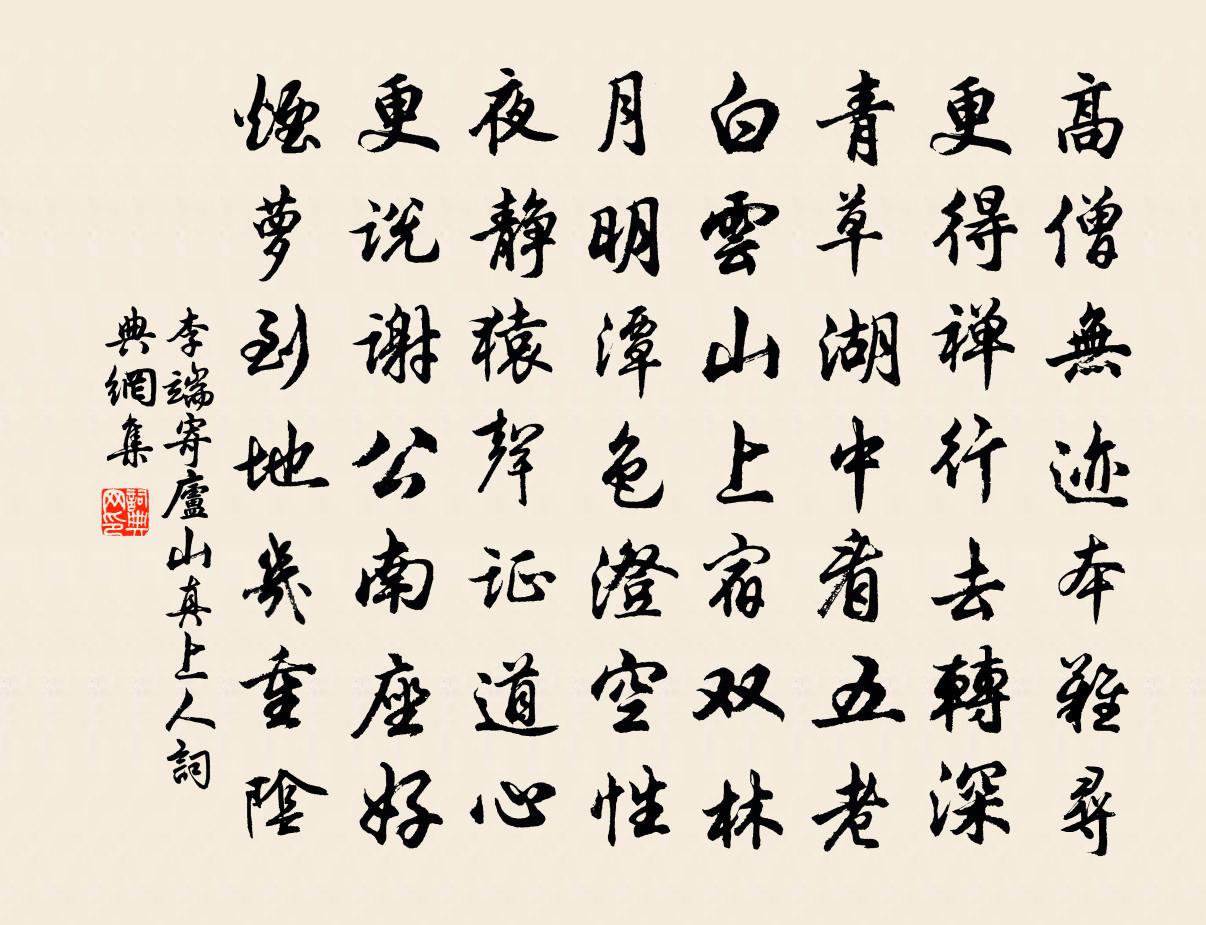 高僧無迹本難尋
更得禅行去轉深
青草湖中看五老
白雲山上宿双林
月明潭色澄空性
夜静猿聲证道心
更说謝公南座好
煙萝到地幾重陰
李端寄廬山真上人詞
典網集
詞典网印